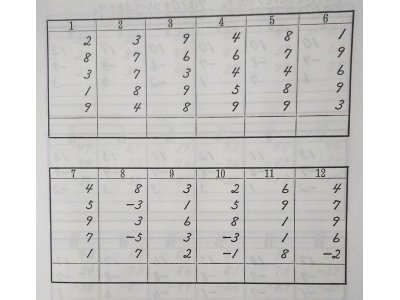 1 2 3 4 5 6
2 3 9 4 8 1
8 7 6 6 7 9
3 7 3 4 4 6
1 8 9 5 8 9
9 4 8 9 9 3
7 8 9 10 11 12
4 8 3 2 6 4
5 -3 1 5 9 7
9 3 6 8 1 9
7 -5 3 -3 1 6
1 7 2 -1 8 -2